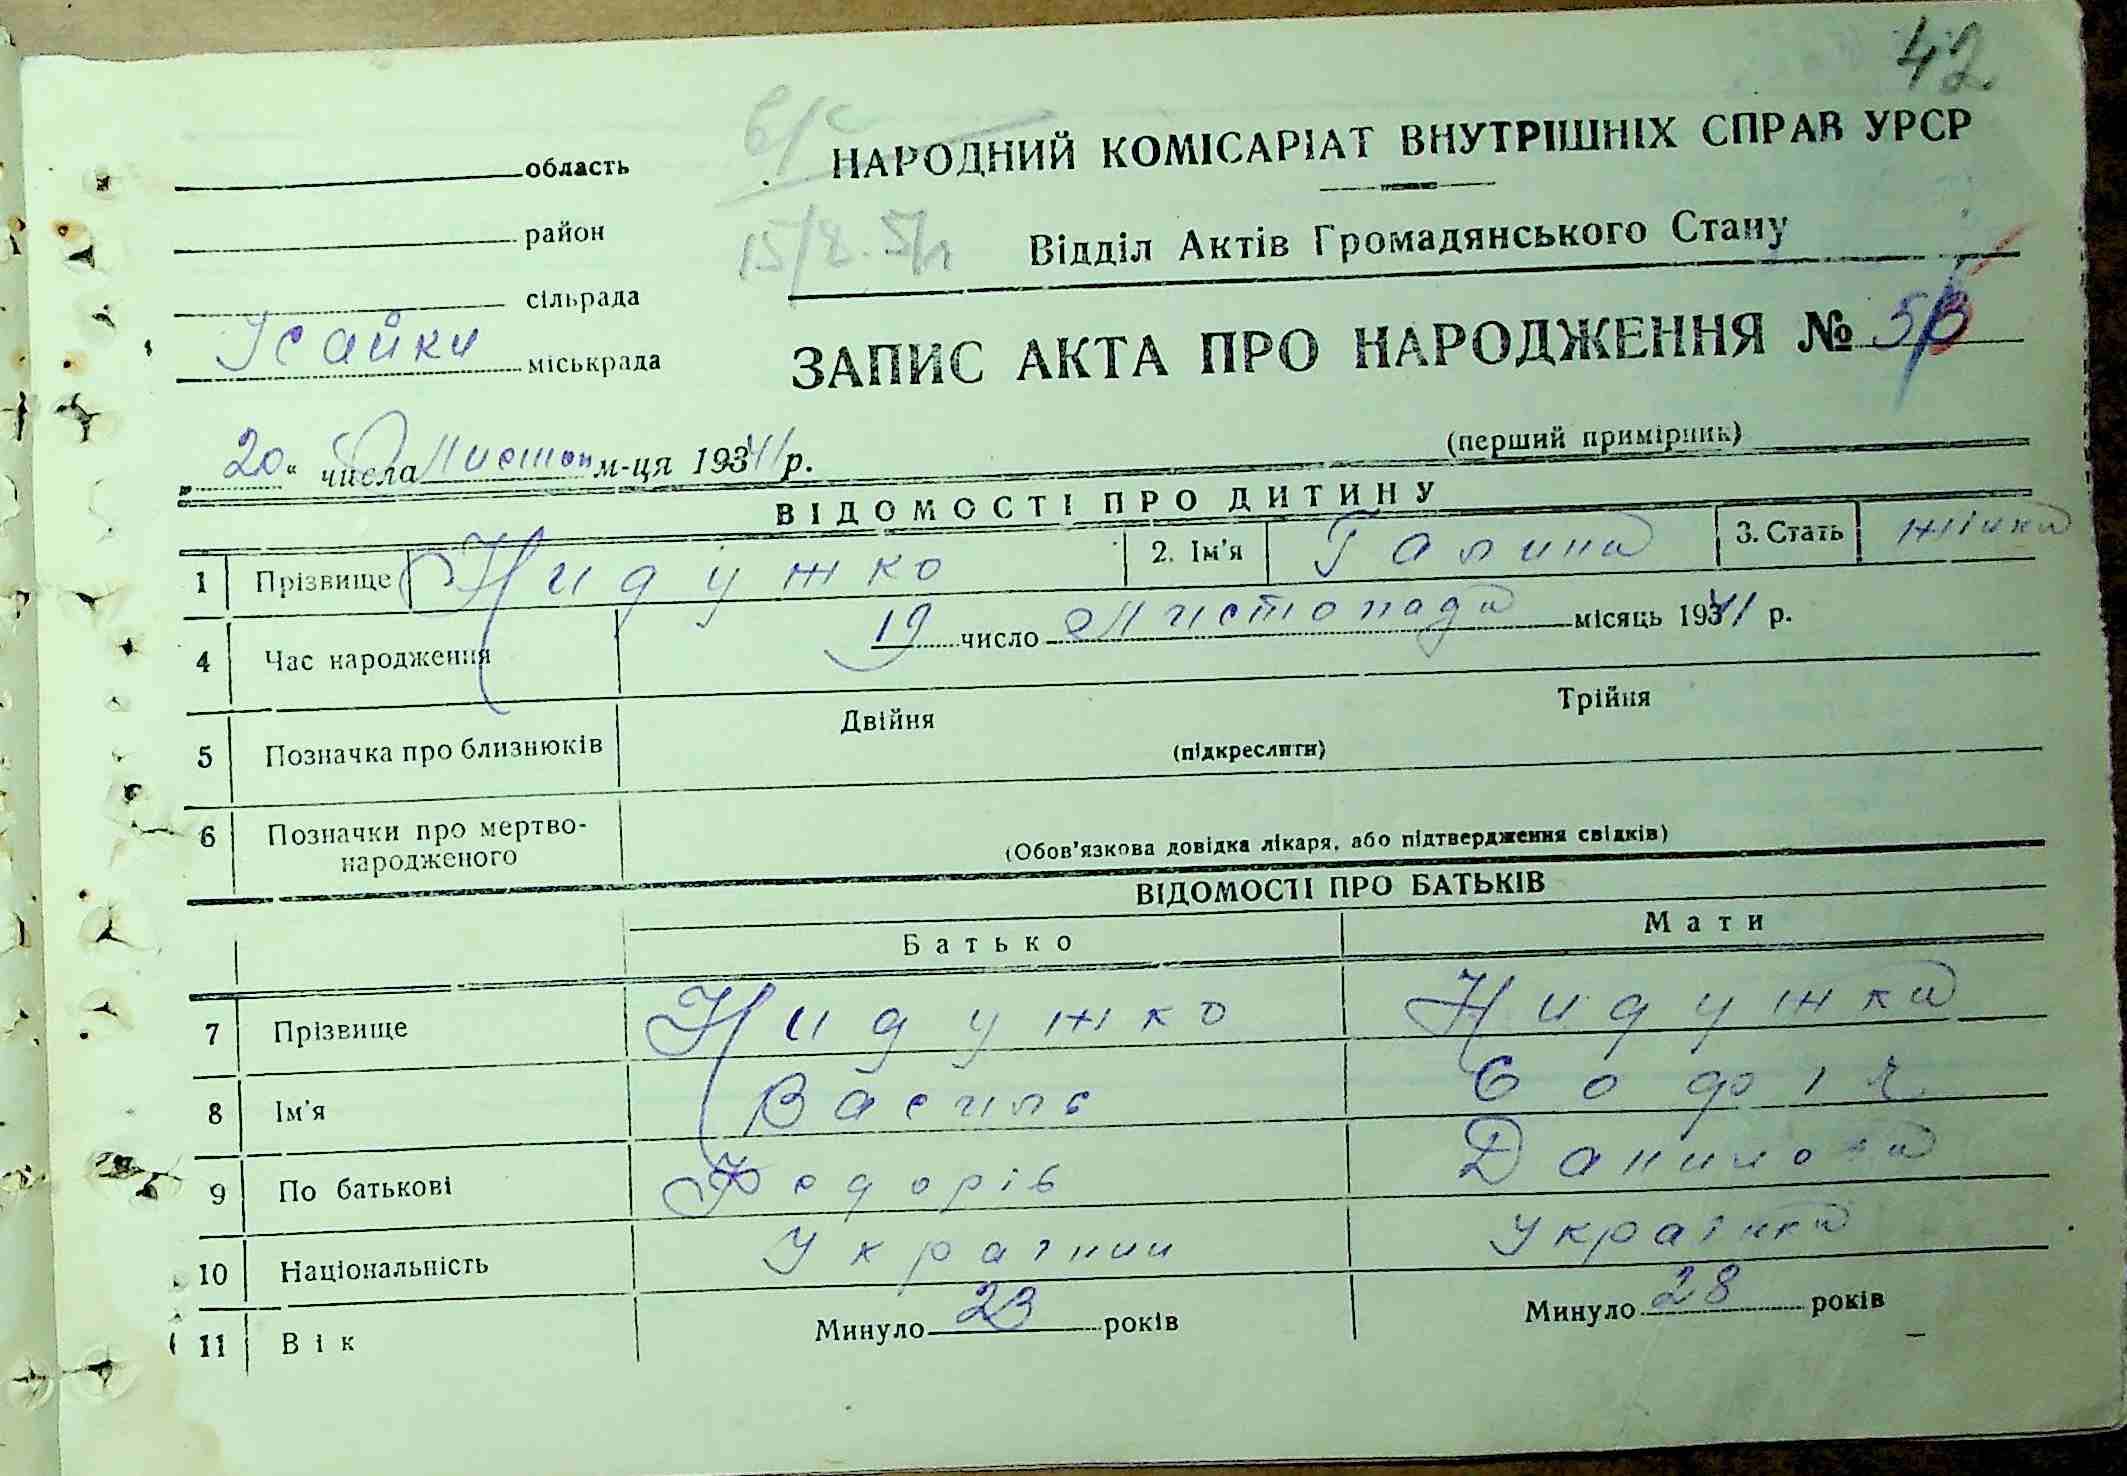 42
область
НАРОДНИЙ КОМІСАРІАТ ВНУТРІШНІХ СПРАВ УРСР
район
15/8.
Відділ Актів Громадянського Стану
сільрада
Усайки міськрада
ЗАПИС АКТА ПРО НАРОДЖЕННЯ №
(перший примірник)
„20“ числа Листоп м-ця 1941 р.
ВІДОМОСТІ ПРО ДИТИНУ
1 Прізвище Нидужко 2. Ім'я Галина 3. Стать жінка
4 Час народження 19 число Листопада місяць 1941 р.
5 Позначка про близнюків Двійня Трійня
(підкреслити)
6 Позначки про мертво-
народженого
(Обов'язкова довідка лікаря, або підтвердження свідків)
ВІДОМОСТІ ПРО БАТЬКІВ
Батько Мати
7 Прізвище Нидужко Нидужка
8 Ім'я Василь
9 По батькові Федорів Данилова
10 Національність Українии Українка
11 Вік Минуло 23 років Минуло 28 років